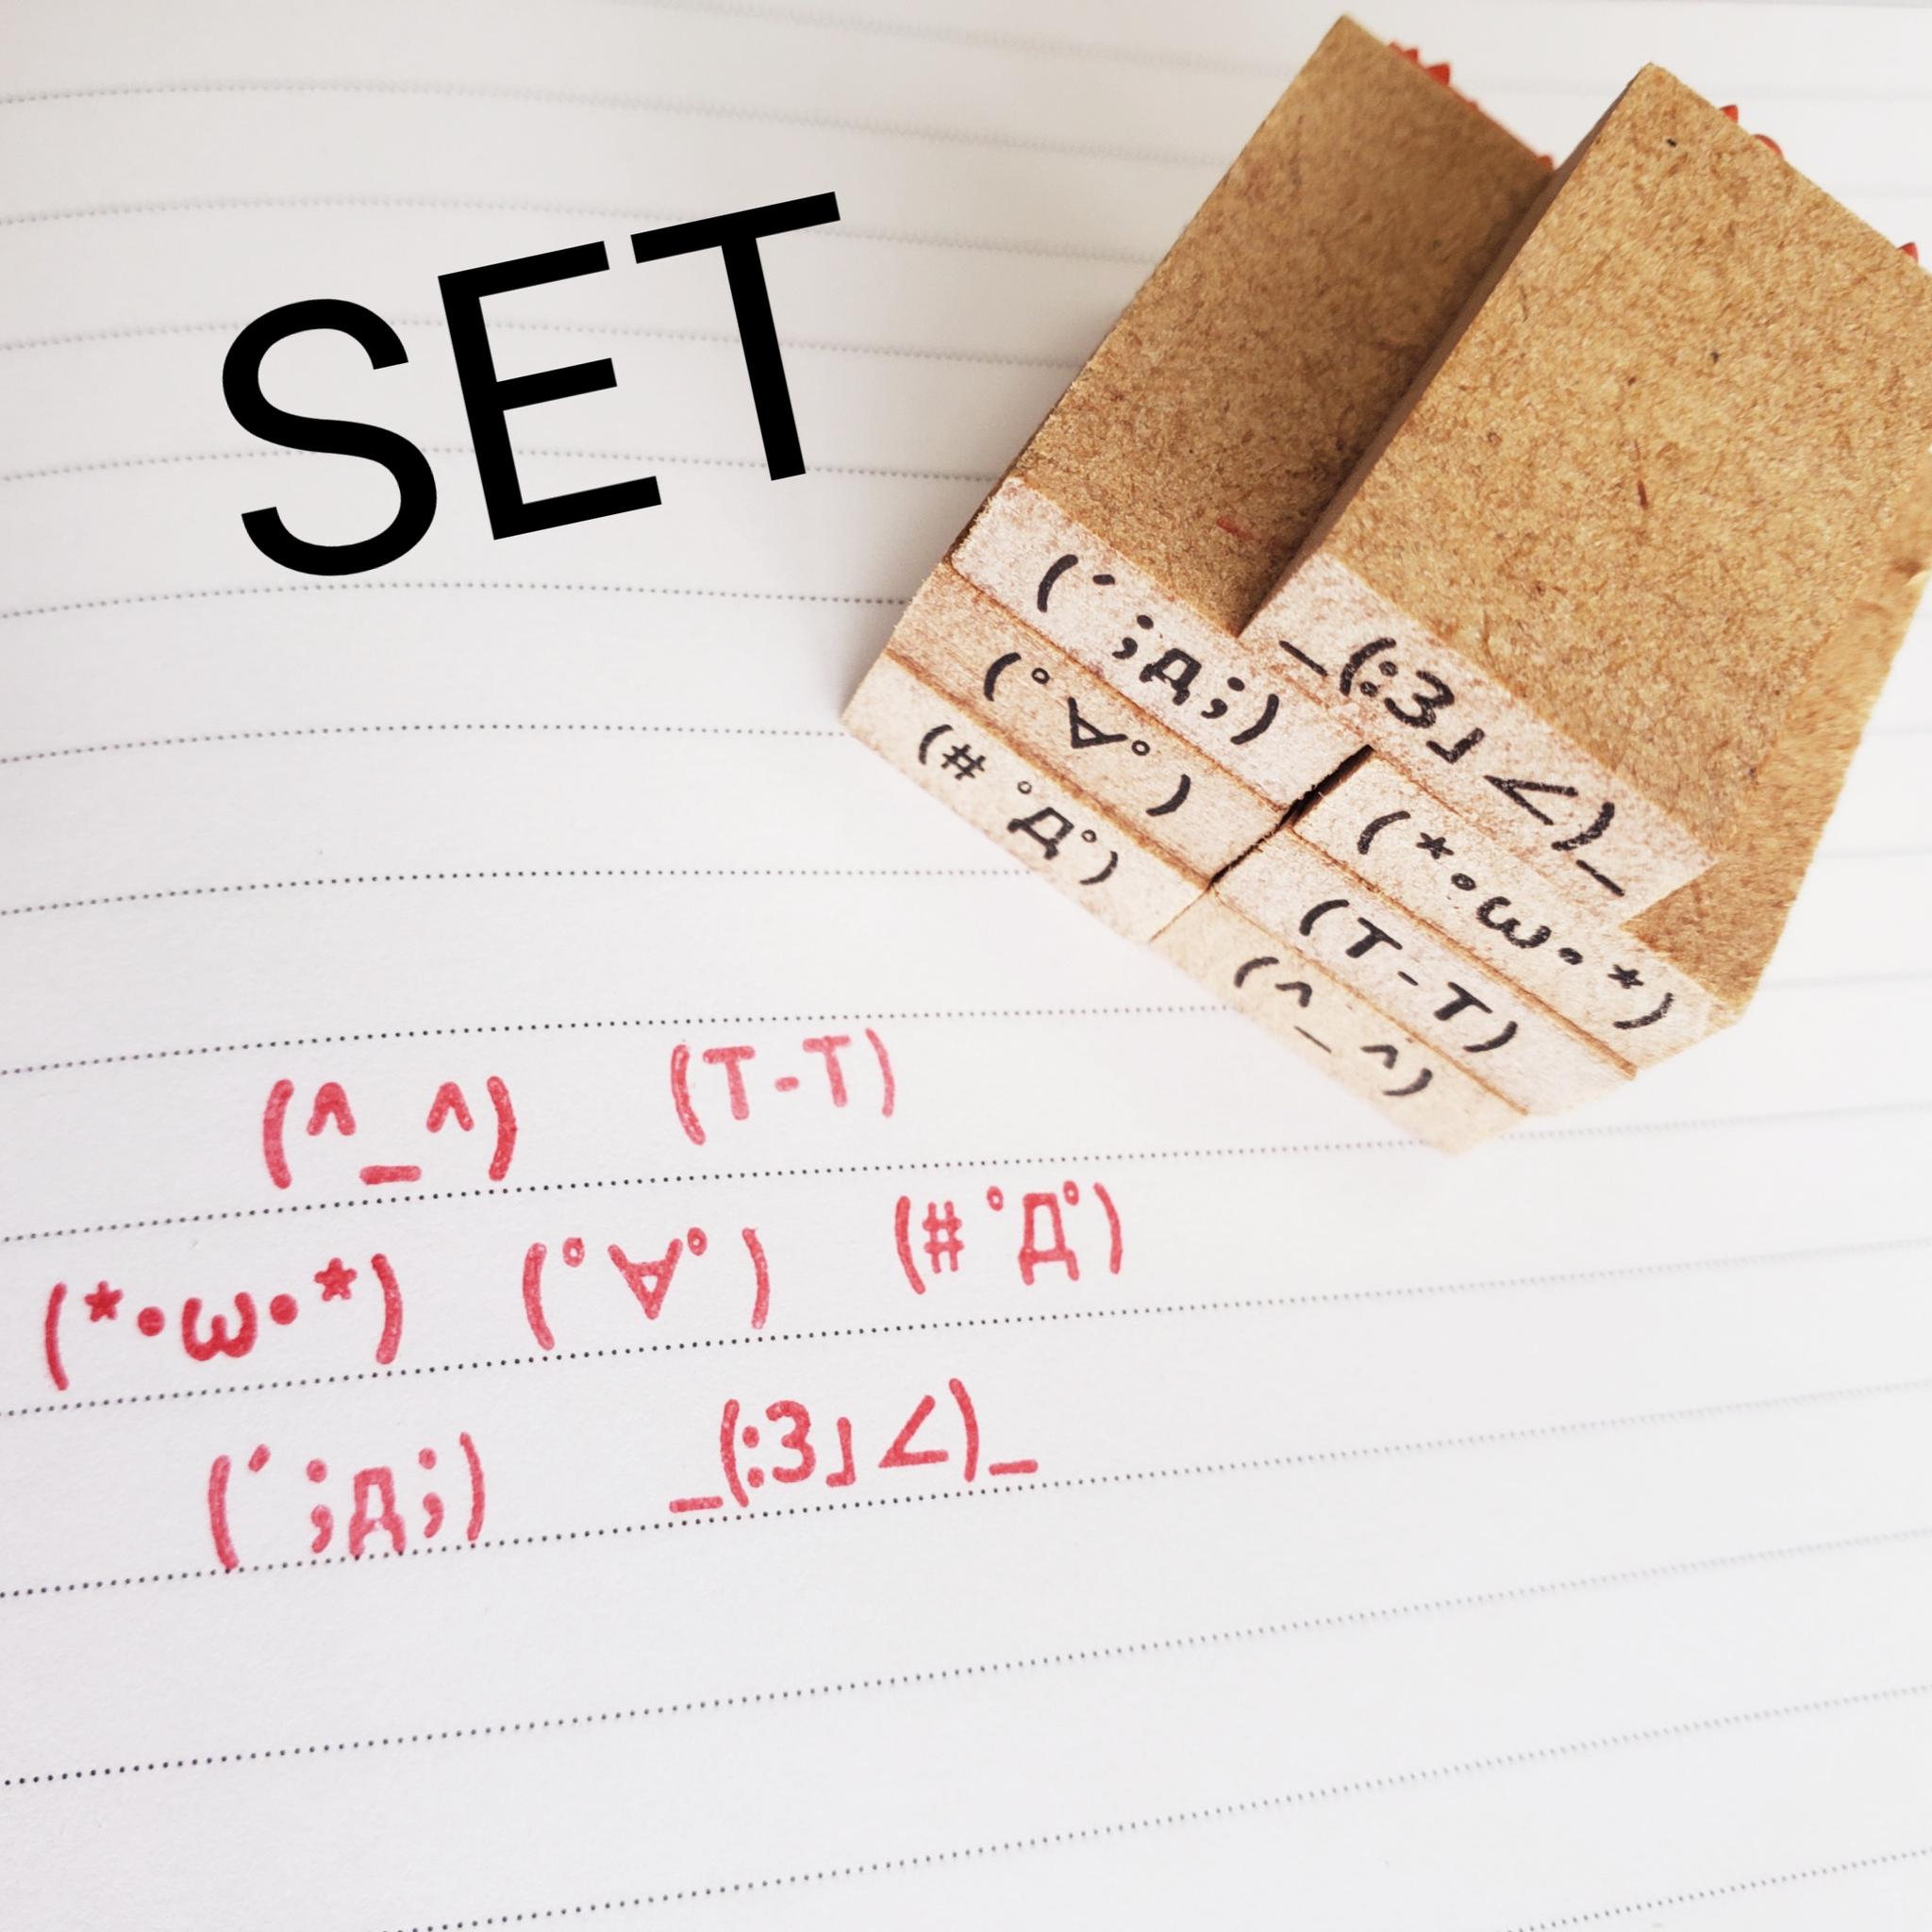 SET
(´ ;Д;)
(° ∀° )
(# °Д°)
_(:3」∠)_
(*•ω•*)
(T-T)
(^_^)
(^_^) (T-T)
(*•ω•*) (°∀° ) (# °Д°)
(´ ;Д;) _(:3」∠)_